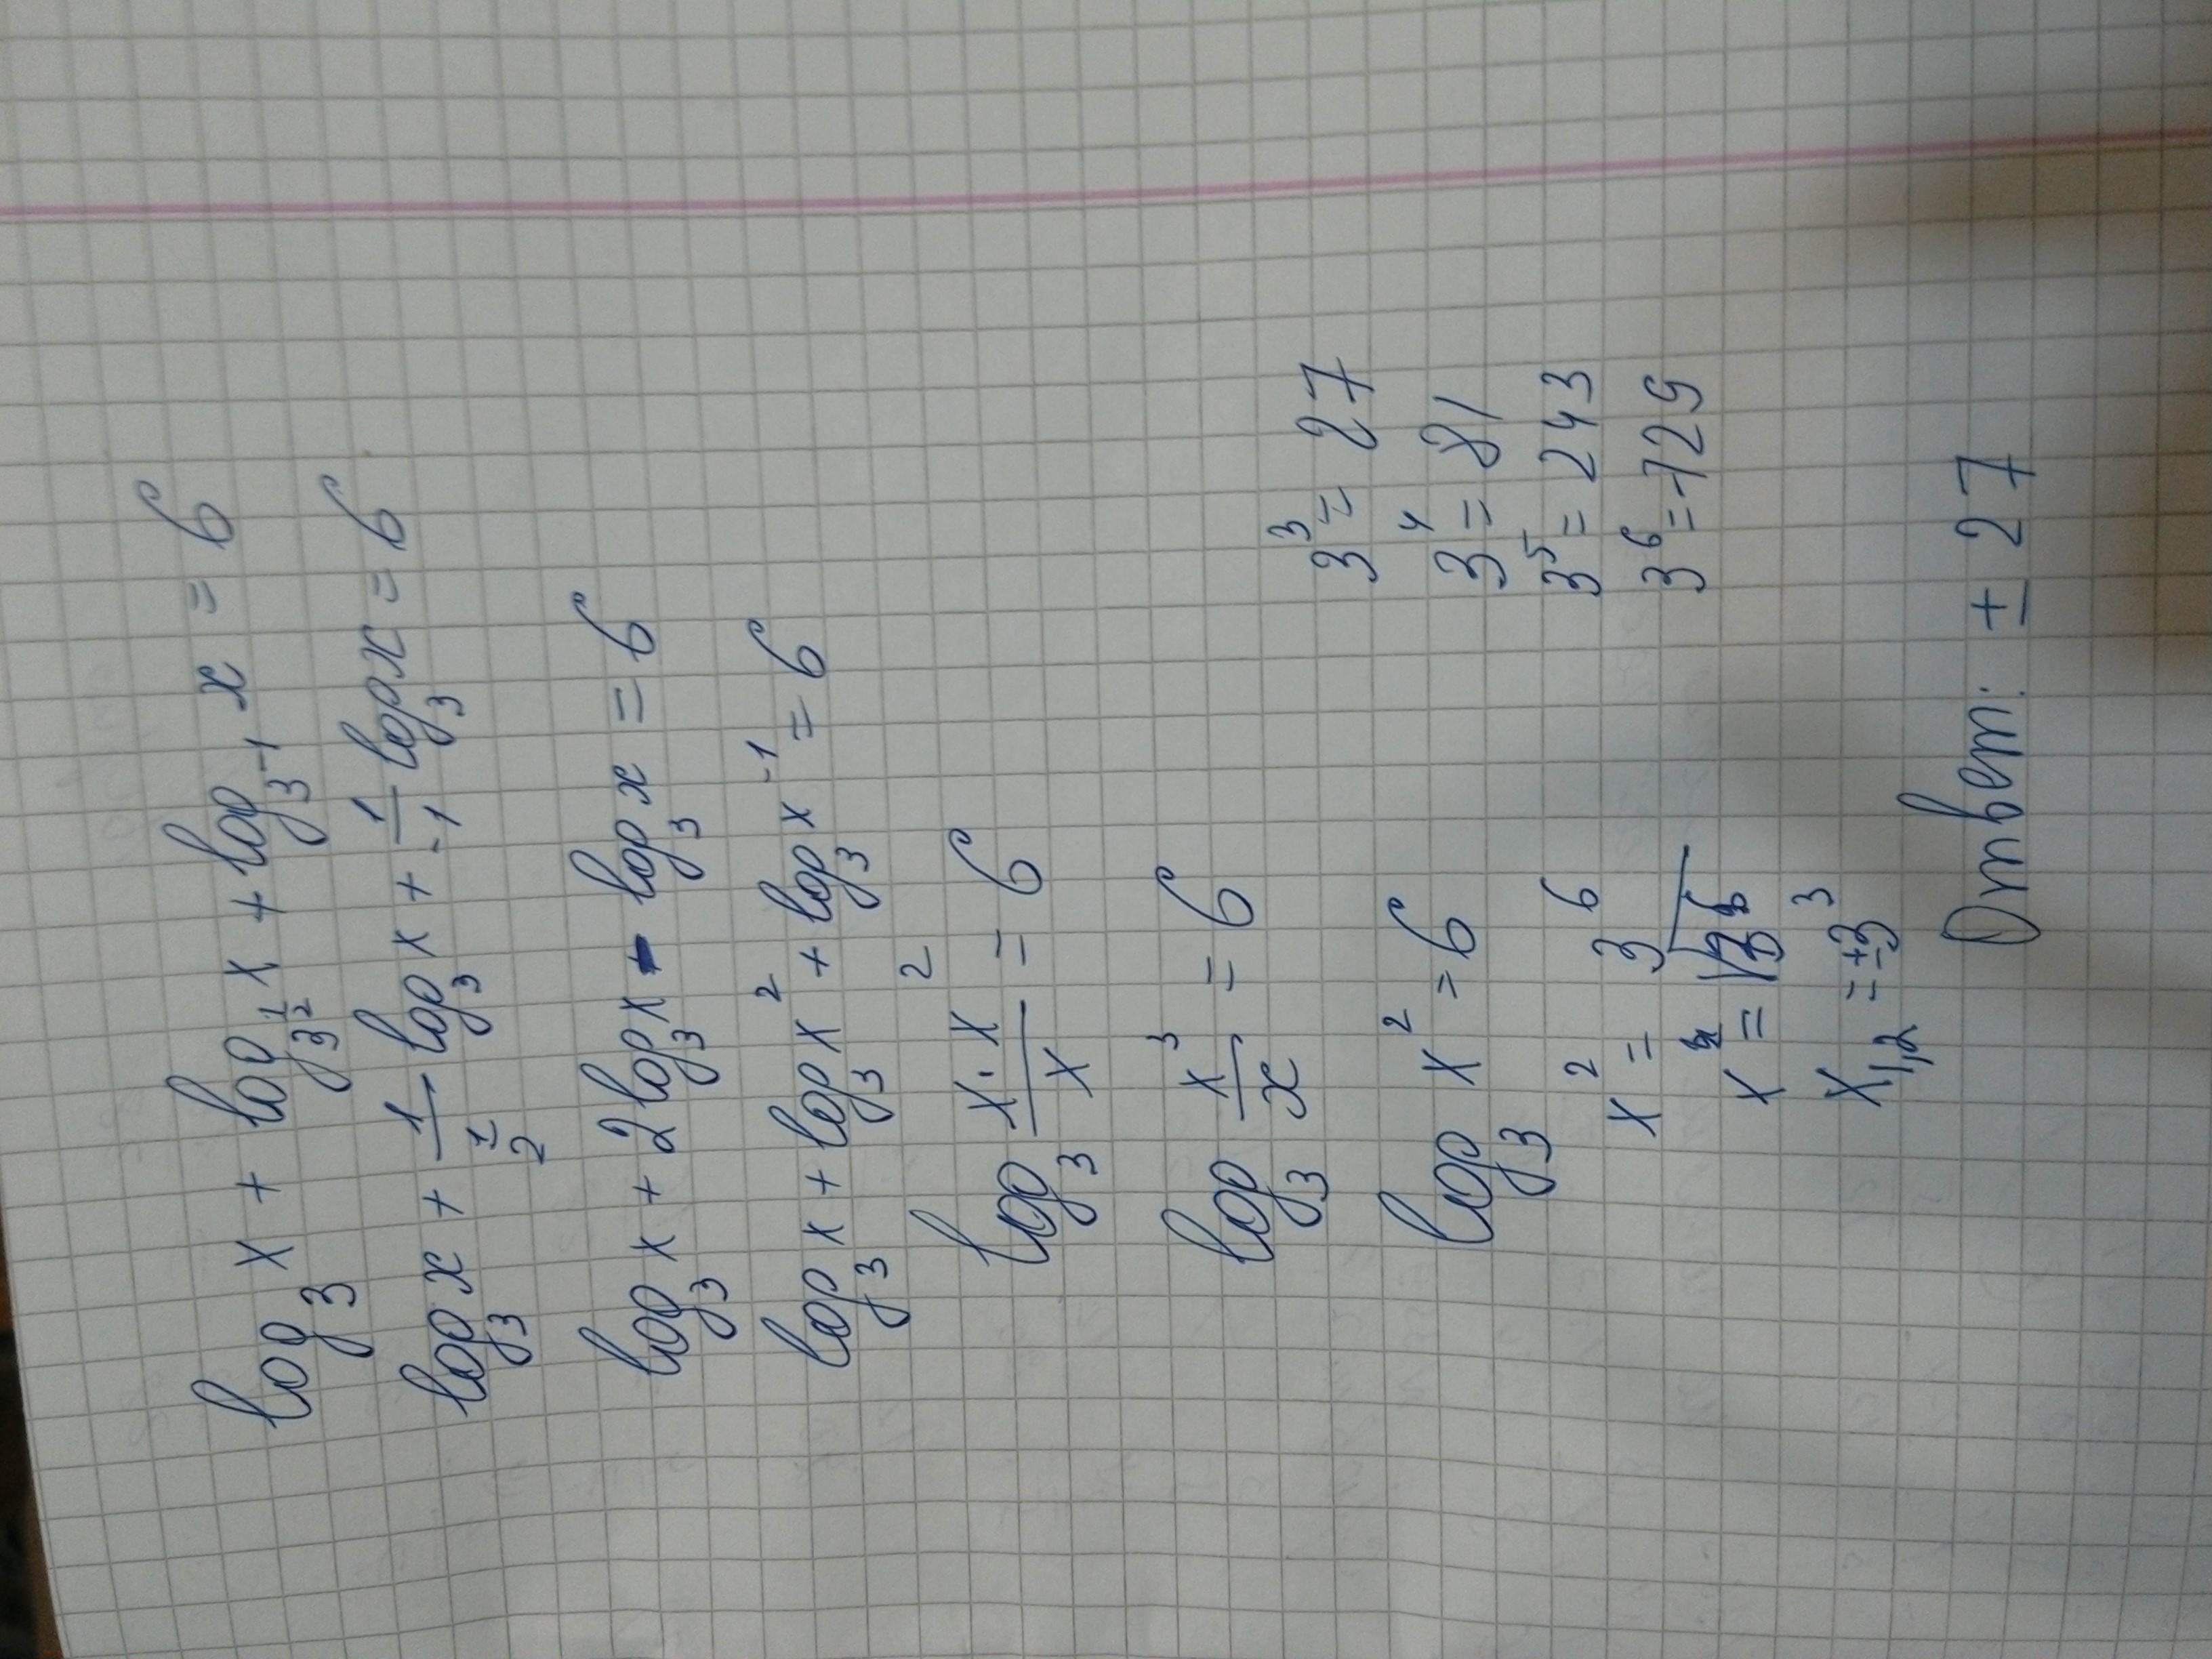 log₃ x + log_{3^{1/2}} x + log_{3⁻¹} x = 6
log₃ x + 1/(1/2) · log₃ x + 1/-1 log₃ x = 6
log₃ x + 2 log₃ x - log₃ x = 6
log₃ x + log₃ x² + log₃ x⁻¹ = 6
log₃ (x · x²)/x = 6
log₃ x³/x = 6
log₃ x² = 6
x² = 3⁶
x = √3⁶
x₁,₂ = ±3³
3³ = 27
3⁴ = 81
3⁵ = 243
3⁶ = 729
Ответ: ± 27